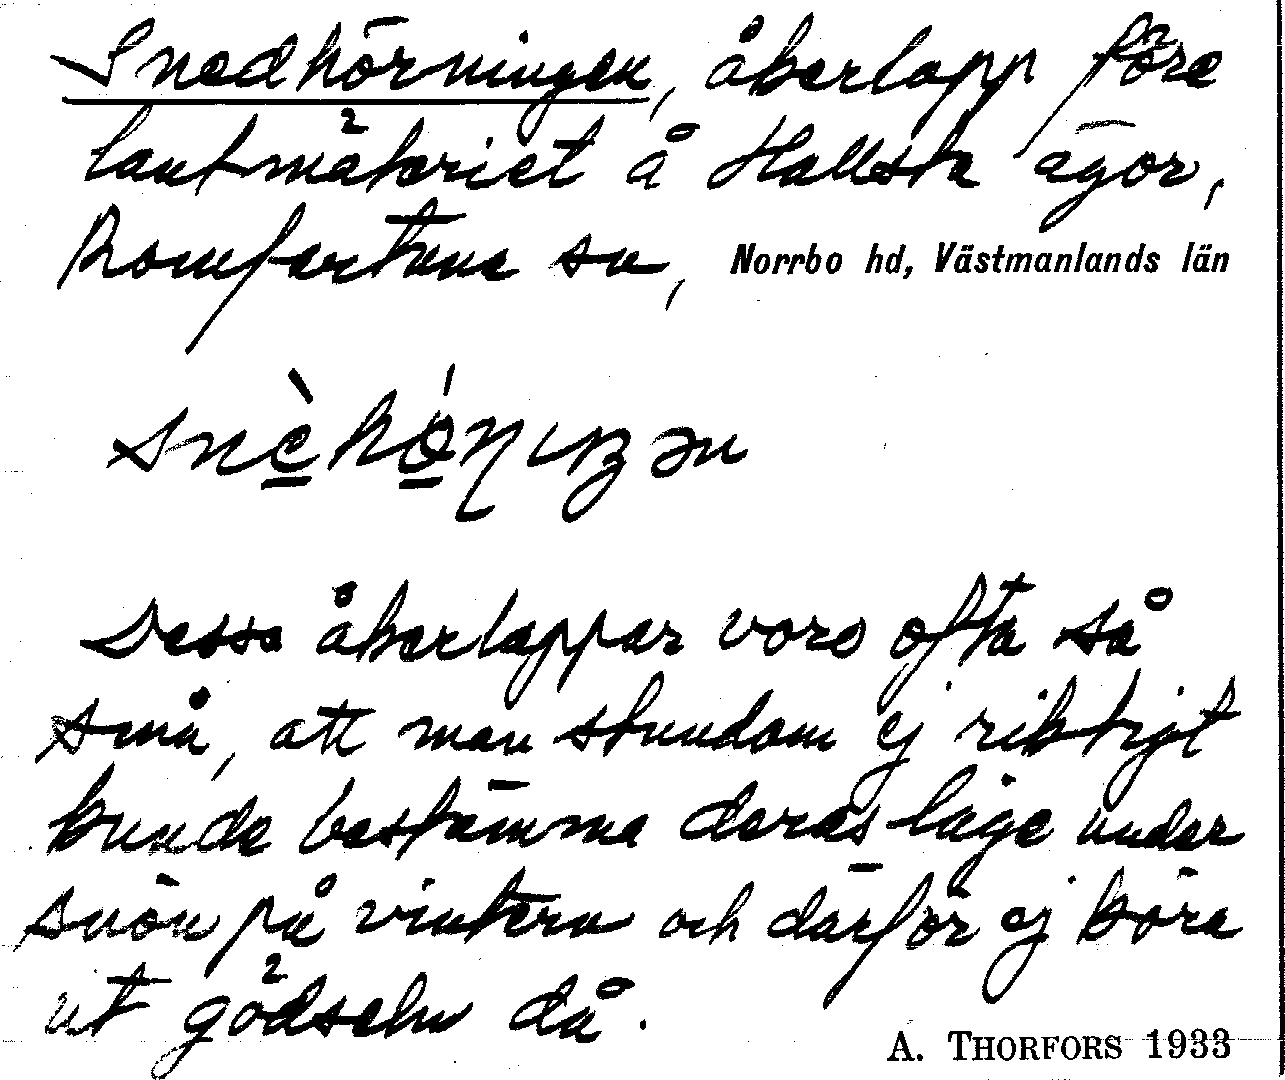 Snedhörningen, åkerlapp före
lantmäteriet å Hallsta ägor,
Romfartuna sn, Norrbo hd, Västmanlands län
Dessa åkerlappar voro ofta så
små, att man stundom ej riktigt
kunde bestämma deras läge under
snön på vintern och därför ej köra
ut gödseln då.
A. THORFORS 1933